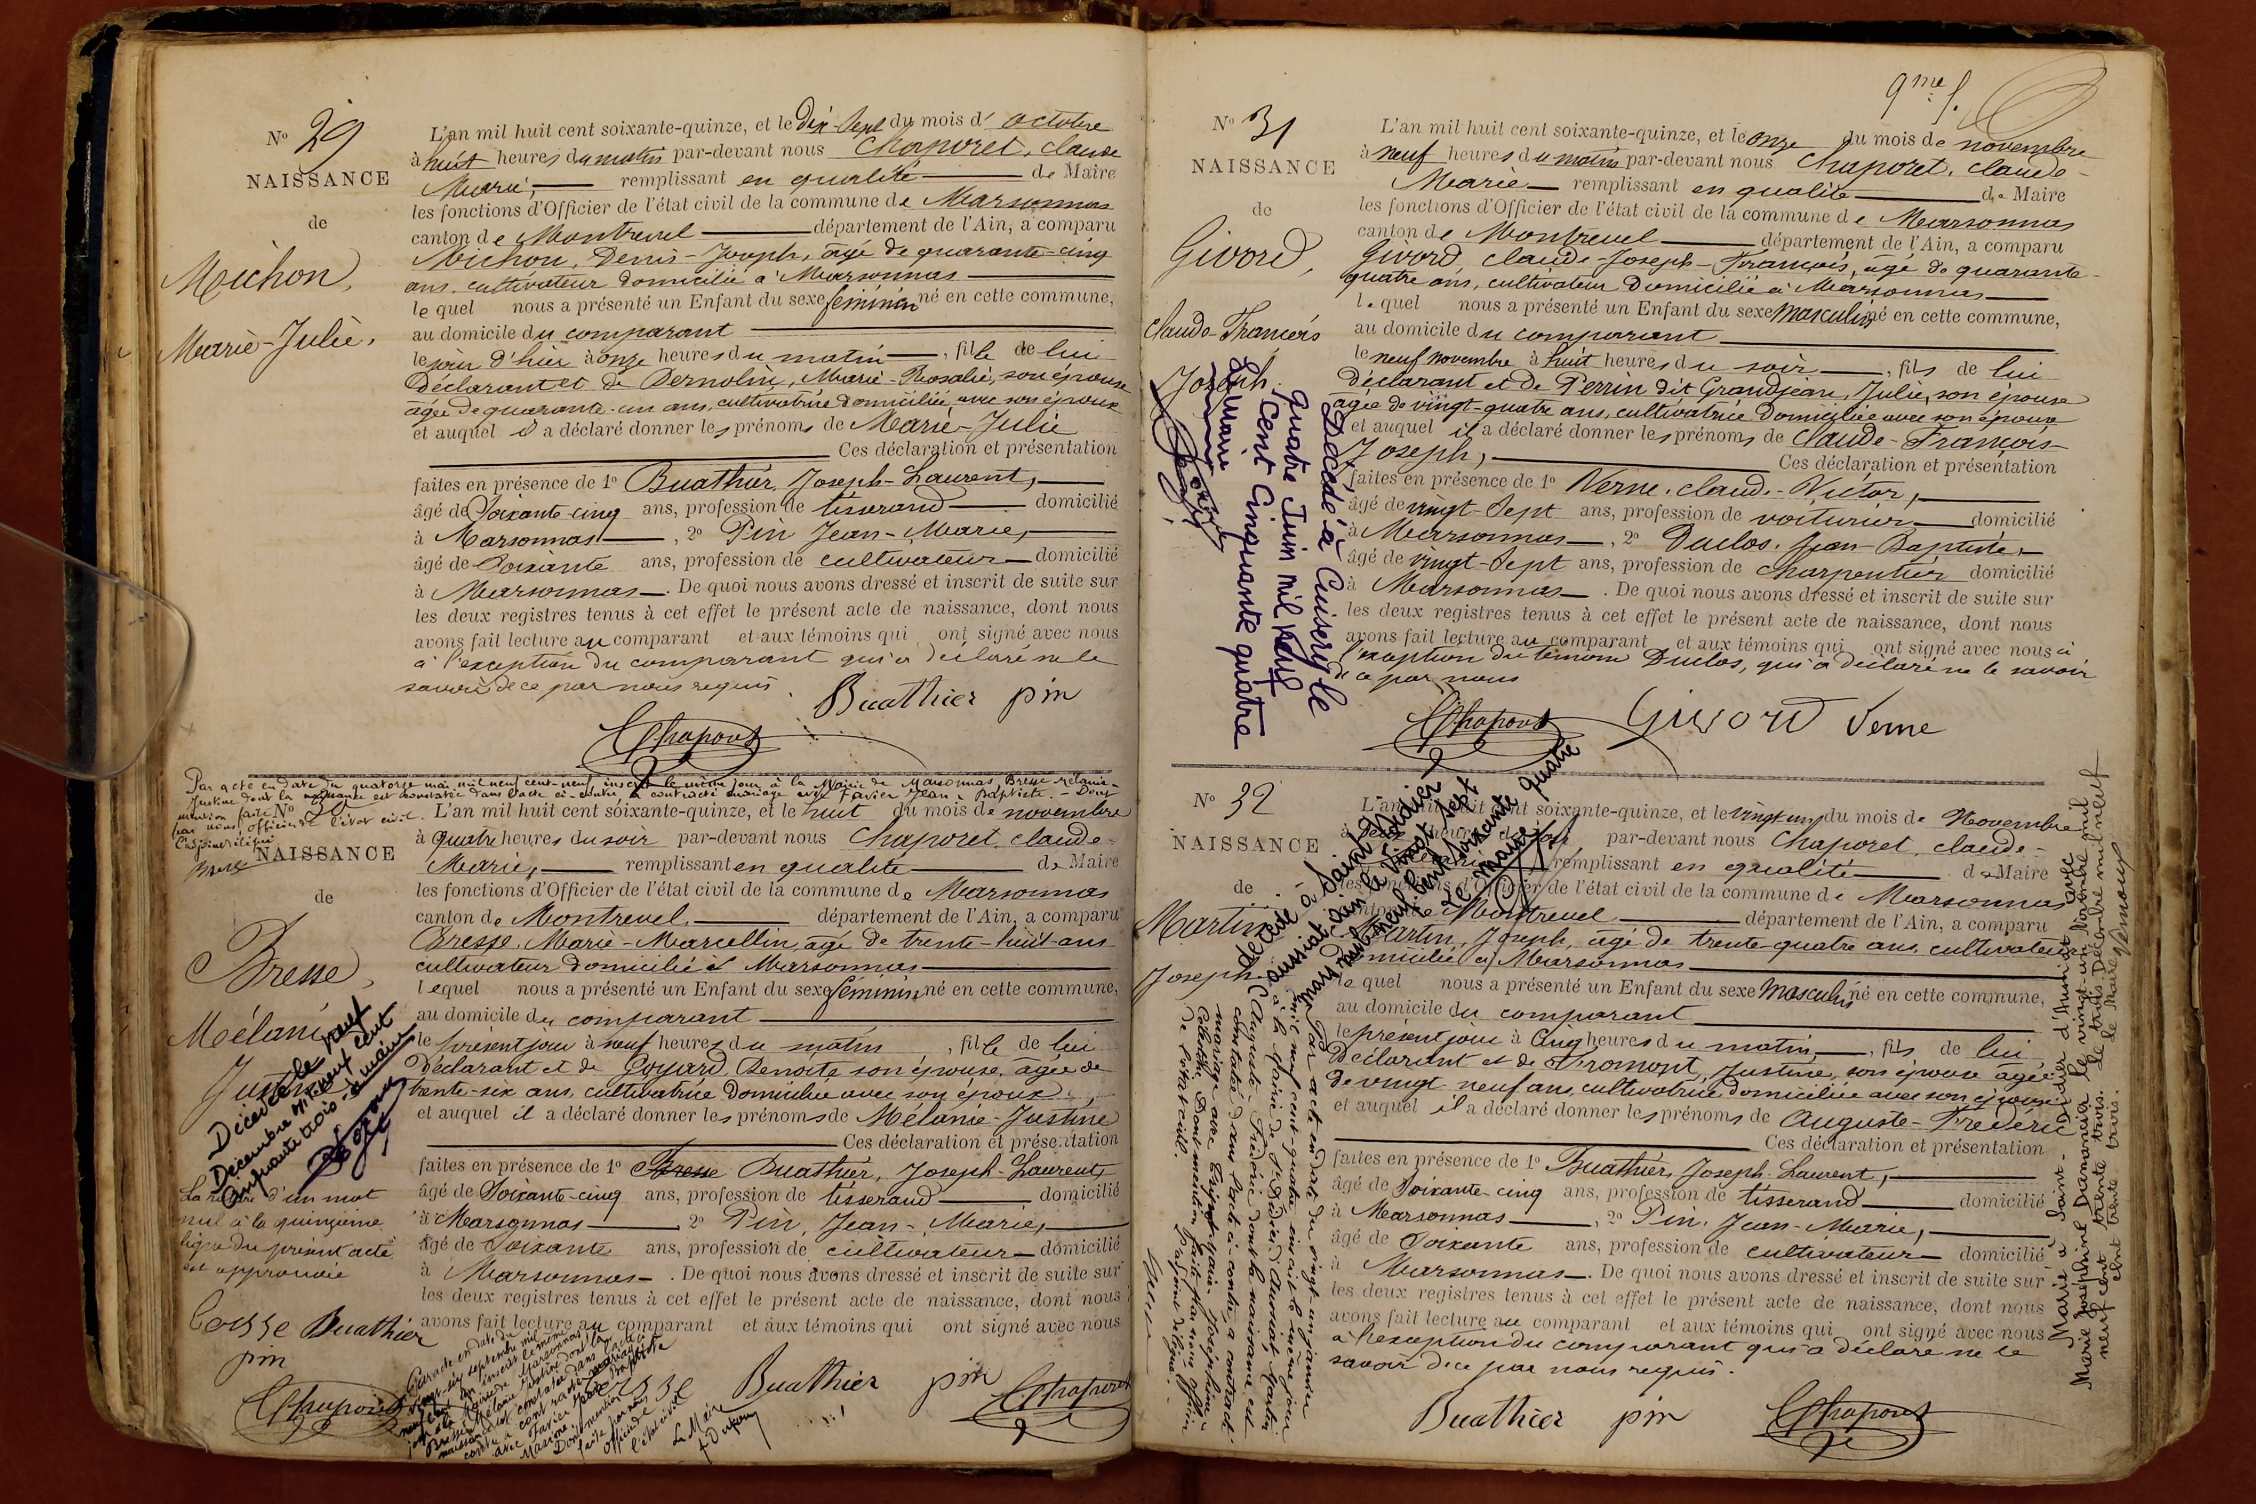 N° 29
NAISSANCE
de
Michon,
Marie-Julie,
L'an mil huit cent soixante-quinze, et le dix-sept du mois d'octobre
à huit heures du matin par-devant nous Chaporet, Claude
Marie, remplissant en qualité de Maire
les fonctions d'Officier de l'état civil de la commune de Marsonnas
canton de Montrevel département de l'Ain, a comparu
Michon, Denis-Joseph, âgé de quarante-cinq
ans, cultivateur domicilié à Marsonnas
lequel nous a présenté un Enfant du sexe féminin né en cette commune,
au domicile du comparant
le jour d'hier à onze heures du matin, fille de lui
déclarant et de Pernolin, Marie-Rosalie, son épouse
âgée de quarante-un ans, cultivatrice domiciliée avec son époux
et auquel il a déclaré donner les prénoms de Marie-Julie
Ces déclaration et présentation
faites en présence de 1° Buathier, Joseph-Laurent,
âgé de soixante-cinq ans, profession de tisserand domicilié
à Marsonnas, 2° Pin Jean-Marie,
âgé de soixante ans, profession de cultivateur domicilié
à Marsonnas. De quoi nous avons dressé et inscrit de suite sur
les deux registres tenus à cet effet le présent acte de naissance, dont nous
avons fait lecture au comparant et aux témoins qui ont signé avec nous
à l'exception du comparant qui a déclaré ne le
savoir de ce par nous requis.
Buathier pin
Chaporet
Par acte en date du quatorze mai mil neuf cent neuf inscrit le même jour à la Mairie de Marsonnas Bresse Mélanie
Justine dont la naissance est constatée dans l'acte ci-contre a contracté mariage avec Favier Jean Baptiste. - Dont
mention faite
par nous officier de l'état civil.
N° 30
NAISSANCE
de
Bresse,
Mélanie
Justine
Décédée le neuf
Décembre mil neuf cent
cinquante trois - Le maire
La rature d'un mot
nul à la quinzième
ligne du présent acte
est approuvée
Bresse Buathier
pin
Chaporet
L'an mil huit cent soixante-quinze, et le huit du mois de novembre
à quatre heures du soir par-devant nous Chaporet, Claude-
Marie, remplissant en qualité de Maire
les fonctions d'Officier de l'état civil de la commune de Marsonnas
canton de Montrevel. département de l'Ain, a comparu
Bresse, Marie-Marcellin, âgé de trente-huit ans
cultivateur domicilié à Marsonnas
lequel nous a présenté un Enfant du sexe féminin né en cette commune,
au domicile du comparant
le présent jour à neuf heures du matin, fille de lui
déclarant et de Goyard, Benoite son épouse, âgée de
trente-six ans, cultivatrice domiciliée avec son époux,
et auquel il a déclaré donner les prénoms de Mélanie-Justine
Ces déclaration et présentation
faites en présence de 1° Bresse Buathier, Joseph-Laurent,
âgé de soixante-cinq ans, profession de tisserand domicilié
à Marsonnas, 2° Pin, Jean-Marie,
âgé de soixante ans, profession de cultivateur domicilié
à Marsonnas. De quoi nous avons dressé et inscrit de suite sur
les deux registres tenus à cet effet le présent acte de naissance, dont nous
avons fait lecture au comparant et aux témoins qui ont signé avec nous
Bresse Buathier pin Chaporet
Par acte en date du
vingt-six septembre mil
Dont mention
faite par nous
officier de
l'état civil
Le Maire
9me f.
N° 31
NAISSANCE
de
Givord,
Claude-François
Joseph.
Décédé à Cuisery le
quatre Juin mil neuf
cent cinquante quatre
Le maire
L'an mil huit cent soixante-quinze, et le onze du mois de novembre
à neuf heures du matin par-devant nous Chaporet, Claude-
Marie remplissant en qualité de Maire
les fonctions d'Officier de l'état civil de la commune de Marsonnas
canton de Montrevel département de l'Ain, a comparu
Givord, Claude-Joseph-François, âgé de quarante-
quatre ans, cultivateur domicilié à Marsonnas
lequel nous a présenté un Enfant du sexe masculin né en cette commune,
au domicile du comparant
le neuf novembre à huit heures du soir, fils de lui
déclarant et de Perrin dit Grandjean, Julie, son épouse
âgée de vingt-quatre ans, cultivatrice domiciliée avec son époux
et auquel il a déclaré donner les prénoms de Claude-François-
Joseph, Ces déclaration et présentation
faites en présence de 1° Verne, Claude-Victor,
âgé de vingt-sept ans, profession de voiturier domicilié
à Marsonnas, 2° Duclos, Jean-Baptiste,
âgé de vingt-sept ans, profession de charpentier domicilié
à Marsonnas. De quoi nous avons dressé et inscrit de suite sur
les deux registres tenus à cet effet le présent acte de naissance, dont nous
avons fait lecture au comparant et aux témoins qui ont signé avec nous à
l'exception du témoin Duclos, qui a déclaré ne le savoir
de ce par nous
Chaporet Givord Verne
N° 32
NAISSANCE
de
Martin
Joseph
décédé à Saint Didier
d'aussiat, Ain le vingt sept
mars mil neuf cent soixante quatre
Le maire
L'an mil huit cent soixante-quinze, et le vingt un du mois de Novembre
par-devant nous Chaporet, Claude-
remplissant en qualité de Maire
les fonctions d'Officier de l'état civil de la commune de Marsonnas
canton de Montrevel département de l'Ain, a comparu
Martin, Joseph, âgé de trente-quatre ans, cultivateur
domicilié à Marsonnas
lequel nous a présenté un Enfant du sexe masculin né en cette commune,
au domicile du comparant
le présent jour à cinq heures du matin, fils de lui
déclarant et de Fromont, Justine, son épouse âgée
de vingt-neuf ans, cultivatrice domiciliée avec son époux
et auquel il a déclaré donner les prénoms de Auguste-Frédéric
Ces déclaration et présentation
faites en présence de 1° Buathier, Joseph-Laurent,
âgé de soixante-cinq ans, profession de tisserand domicilié
à Marsonnas, 2° Pin, Jean-Marie,
âgé de soixante ans, profession de cultivateur domicilié
à Marsonnas. De quoi nous avons dressé et inscrit de suite sur
les deux registres tenus à cet effet le présent acte de naissance, dont nous
avons fait lecture au comparant et aux témoins qui ont signé avec nous
à l'exception du comparant qui a déclaré ne le
savoir de ce par nous requis.
Buathier pin Chaporet
Par acte en date du vingt-un janvier
mil neuf cent-quatre inscrit le même jour
à la mairie de St Didier d'Aussiat, Martin
(Auguste-Frédéric dont la naissance est
constatée dans l'acte ci-contre, a contracté
mariage avec Joséphine
Dont mention faite par nous officier
de l'état civil.
Marié à Saint-Didier d'Aussiat avec
Marie Joséphine le vingt-un Novembre mil
neuf cent trente trois. Le trois Décembre mil neuf
cent trente trois. Le Maire